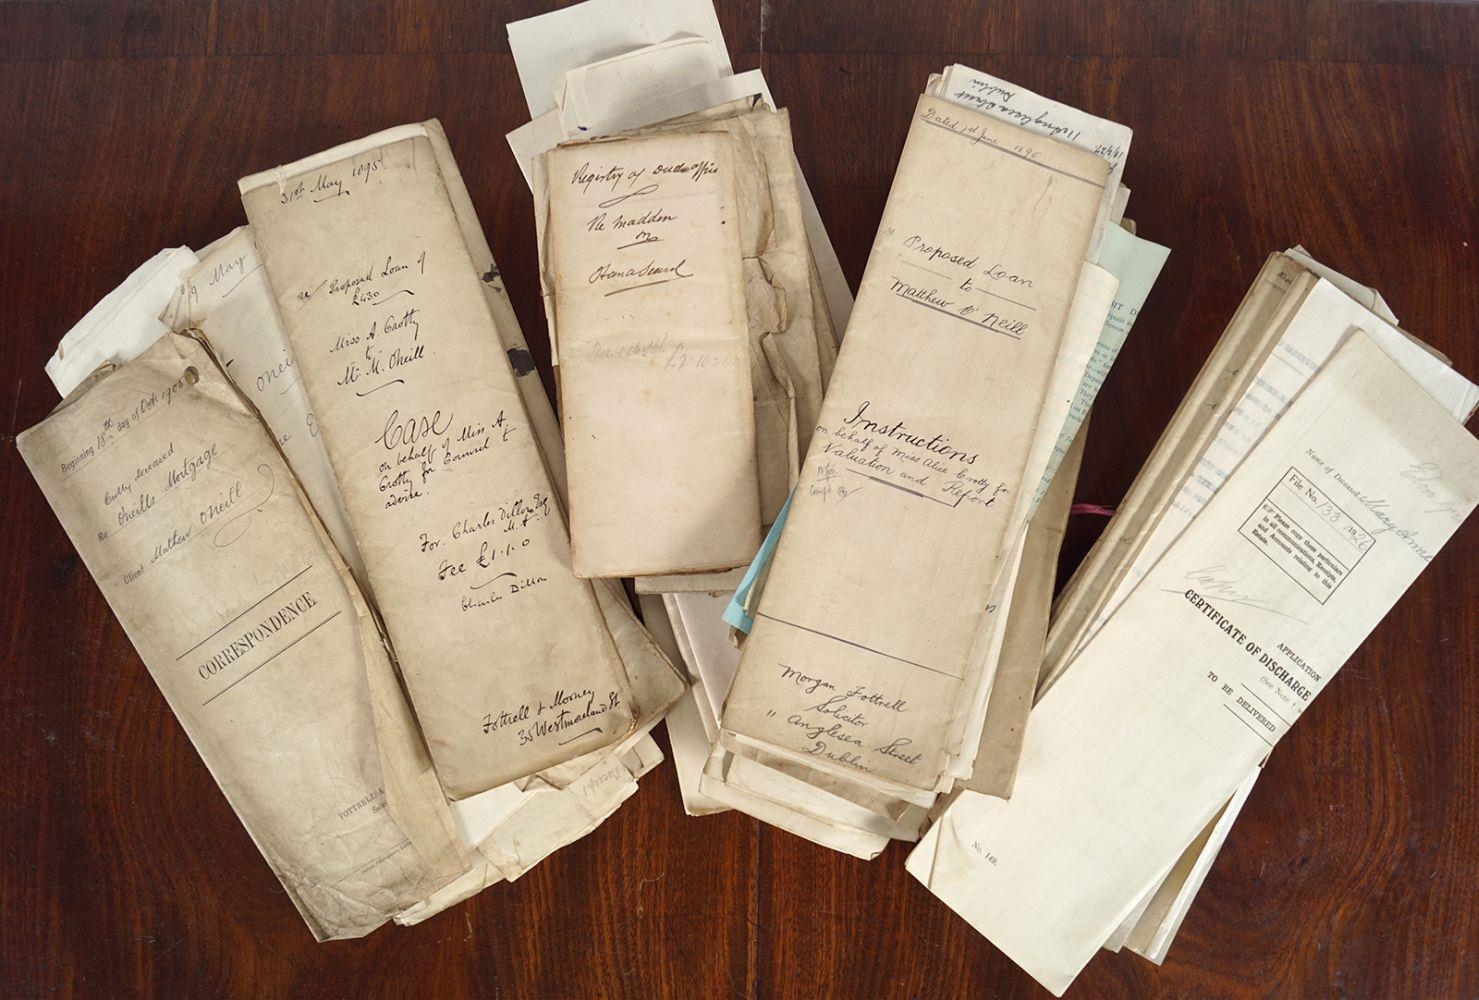 Beginning 18th day of Octr 1905
Crotty deceased
Re O'Neills Mortgage
Client Mathew O'Neill
CORRESPONDENCE
9 May
31st May 1895
re Proposed Loan of
£430
Miss A. Crotty
to
Mr M. O'Neill.
Case
on behalf of Miss A.
Crotty for Counsel to
advise.
For. Charles Dillon Esq
Fee £1.1.0
Charles Dillon
Fottrell & Mooney
35 Westmoreland St
Registry of Deeds office
Re Madden
£2-10=0
Anglesea Street
Dublin
Dated 1st June 1895
Proposed Loan
to
Matthew O'Neill
Instructions
on behalf of Miss Alice Crotty for
Valuation and Report
Morgan Fottrell
Solicitor
11 Anglesea Street
Dublin
Name of Deceased Mary Anne
File No. 133 1926
Please copy these particulars
in all communications, Receipts,
and Accounts relating to this
Estate.
APPLICATION
(See Note
CERTIFICATE OF DISCHARGE
TO BE DELIVERED
No. 149.